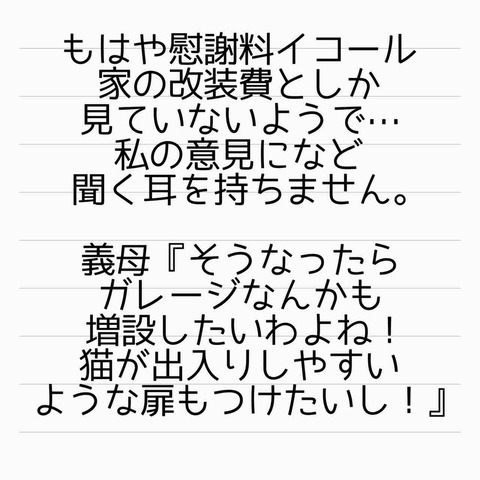 もはや慰謝料イコール
家の改装費としか
見ていないようで…
私の意見になど
聞く耳を持ちません。
義母『そうなったら
ガレージなんかも
増設したいわよね！
猫が出入りしやすい
ような扉もつけたいし！』